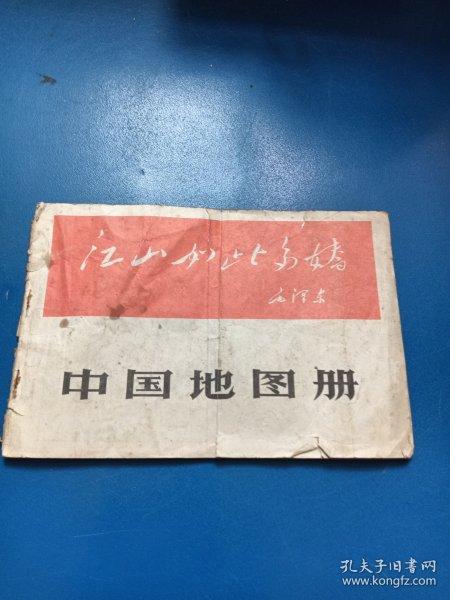 江山如此多娇
毛泽东
中国地图册
孔夫子旧书网
www.kongfz.com